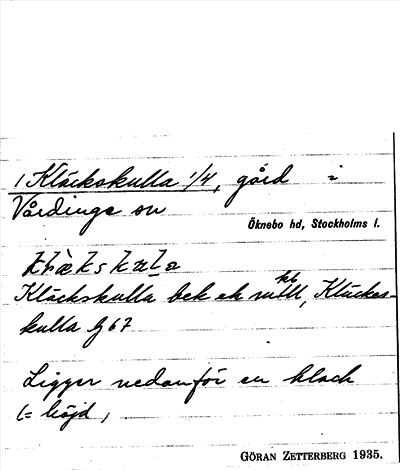 1 Kläckskulla 1/4, gård i
Vårdinge sn
Öknebo hd, Stockholms l.
Kläckskulla bek ek
Kläckes-
kulla 67
Ligger nedanför en klack
(= höjd,
GÖRAN ZETTERBERG 1935.